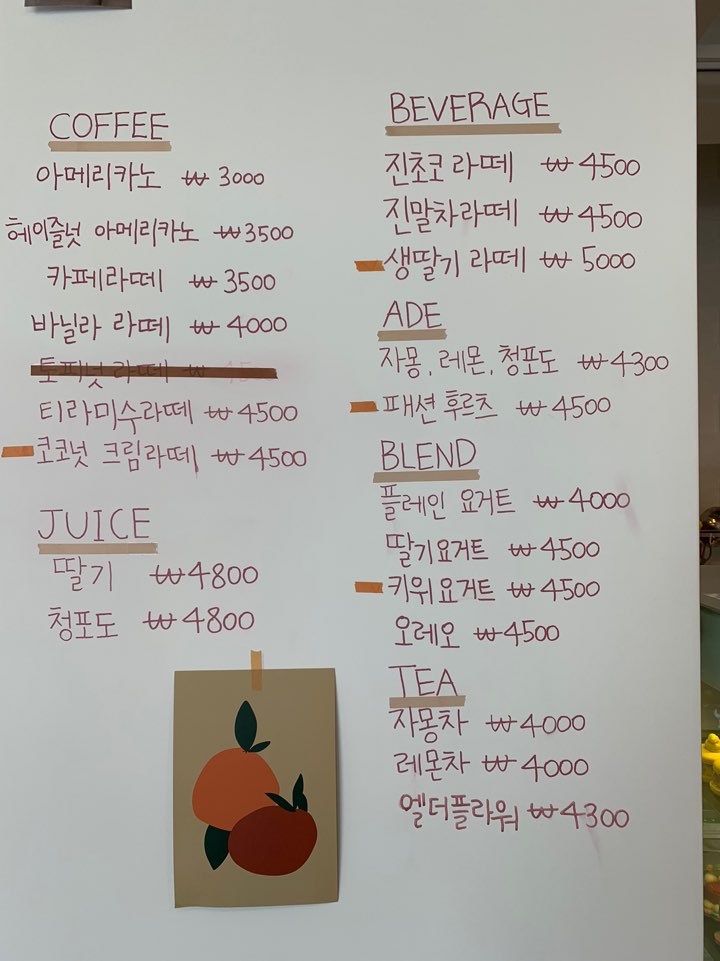 COFFEE
아메리카노 ₩ 3000
헤이즐넛 아메리카노 ₩3500
카페라떼 ₩3500
바닐라 라떼 ₩ 4000
토피넛 라떼 ₩ 4500
티라미수라떼 ₩4500
코코넛 크림라떼 ₩4500
JUICE
딸기 ₩4800
청포도 ₩4800
BEVERAGE
진초코 라떼 ₩ 4500
진말차라떼 ₩ 4500
생딸기 라떼 ₩ 5000
ADE
자몽, 레몬, 청포도 ₩4300
패션 후르츠 ₩4500
BLEND
플레인 요거트 ₩4000
딸기요거트 ₩4500
키위요거트 ₩4500
오레오 ₩4500
TEA
자몽차 ₩4000
레몬차 ₩4000
엘더플라워 ₩4300